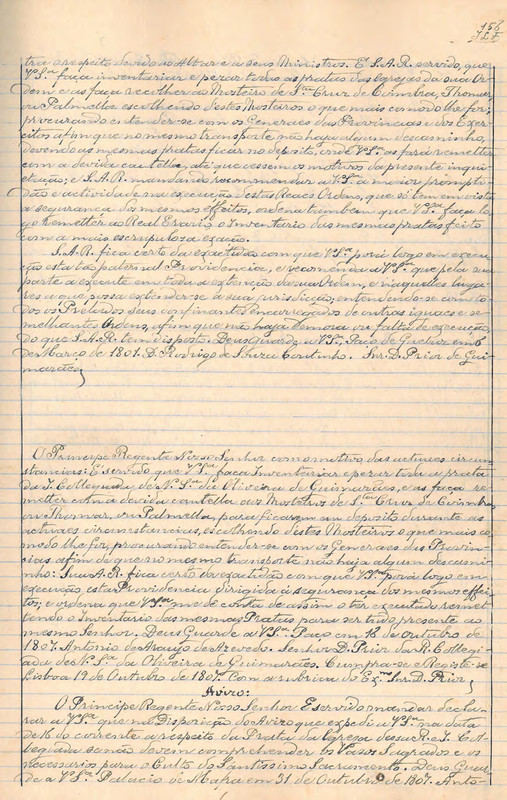 158
tra o respeito devido ao Altar e a seus Ministros. E S.A.R. servido, que
V.Sª. faça inventariar e pezar todas as pratas das Egrejas da sua Or-
dem e as faça recolher ao Mosteiro de Stª Cruz de Coimbra, Thomar
ou Palmella escolhendo destes Mosteiros o que mais comodo lhe for;
procurando entender-se com os Generaes das Provincias e dos Exer-
citos afim que no mesmo transporte não haja algum descaminho,
devendo as mesmas pratas ficar no deposito, onde V.Sª. as fará remetter
com a devida cautella, até que cessem os motivos da presente inqui-
etação; e S.A.R. mandando recommendar a V.Sª. a maior prompti-
dão e actividade na execução destas Reaes Ordens, que só tem em vista
a segurança dos mesmos effeitos, ordena tambem que V.Sª. faça lo-
go remetter ao Real Erario o Inventario das mesmas pratas feito
com a mais escrupulosa exacção.
S.A.R. fica certo da exactidão com que V.Sª. porá logo em execu-
ção esta tão paternal Providencia, e recomenda a V.Sª. que pela sua
parte a execute em toda a extenção da sua Ordem, e naquelles luga-
res a que possa extender-se a sua jurisdicção, entendendo-se com to-
dos os Prelados seus confinantes encarregados de outras iguaes e se-
melhantes Ordens, afim que não haja demora ou falta de execução
do que S.A.R. tem disposto. Deus Guarde a V.Sª. Paço de Queluz em 6
de Março de 1801. D. Rodrigo de Souza Coutinho. Snr. D. Prior de Gui-
marães,
O Principe Regente Nosso Senhor com o motivo das actuaes circun-
stancias: E servido que V.Sª. faça Inventariar e pezar toda a prata
da I. Collegiada de N. Sª. da Oliveira de Guimarães, e as faça re-
metter com a devida cautella aos Mosteiros de Stª Cruz de Coimbra,
ou Thomar, ou Palmella, para ficarem em deposito durante as
actuaes circunstancias, escolhendo destes Mosteiros o que mais co-
modo lhe for, procurando entender-se com os Generaes das Provin-
cias afim de que no mesmo transporte não haja algum descami-
nho: Sua A.R. fica certo da exactidão com que V.Sª. porá logo em
execução esta Providencia dirigida á segurança dos mesmos effei-
tos; e ordena que V.Sª. me dê conta de assim o ter executado remet-
tendo o Inventario das mesmas Pratas para ser tudo presente ao
mesmo Senhor. Deus Guarde a V.Sª. Paço em 16 de outubro de
1807. Antonio de Araujo de Azevedo. Senhor D. Prior da R. Collegi-
ada de N. Sª. da Oliveira de Guimarães. Cumpra-se e Registe-se
Lisboa 19 de Outubro de 1807. Com a rubrica do Exmº Snr. D. Prior,
Aviso:
O Principe Regente Nosso Senhor E servido mandar decla-
rar a V.Sª. que na Disposição do Aviso que expedi a V.Sª. na data
de 16 do corrente a respeito da Prata da Egreja dessa R. I. Col-
legiada se não devem comprehender os Vasos Sagrados e os
necessarios para o Culto do Santissimo Sacramento. Deus Guar-
de a V.Sª. Palacio de Mafra em 31 de Outubro de 1807. Anto-